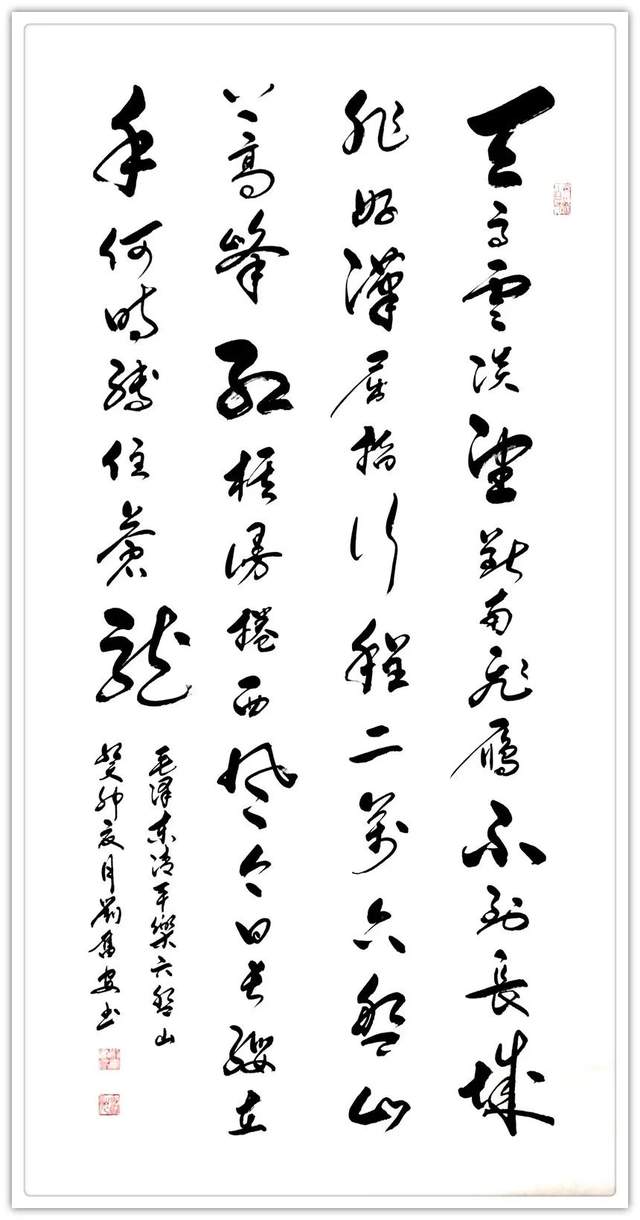 天高雲淡望斷南飛雁不到長城
非好漢屈指行程二萬六盤山
上高峰紅旗漫捲西風今日長纓在
手何時縛住蒼龍
毛澤東清平樂六盤山
癸卯夏月劉安书